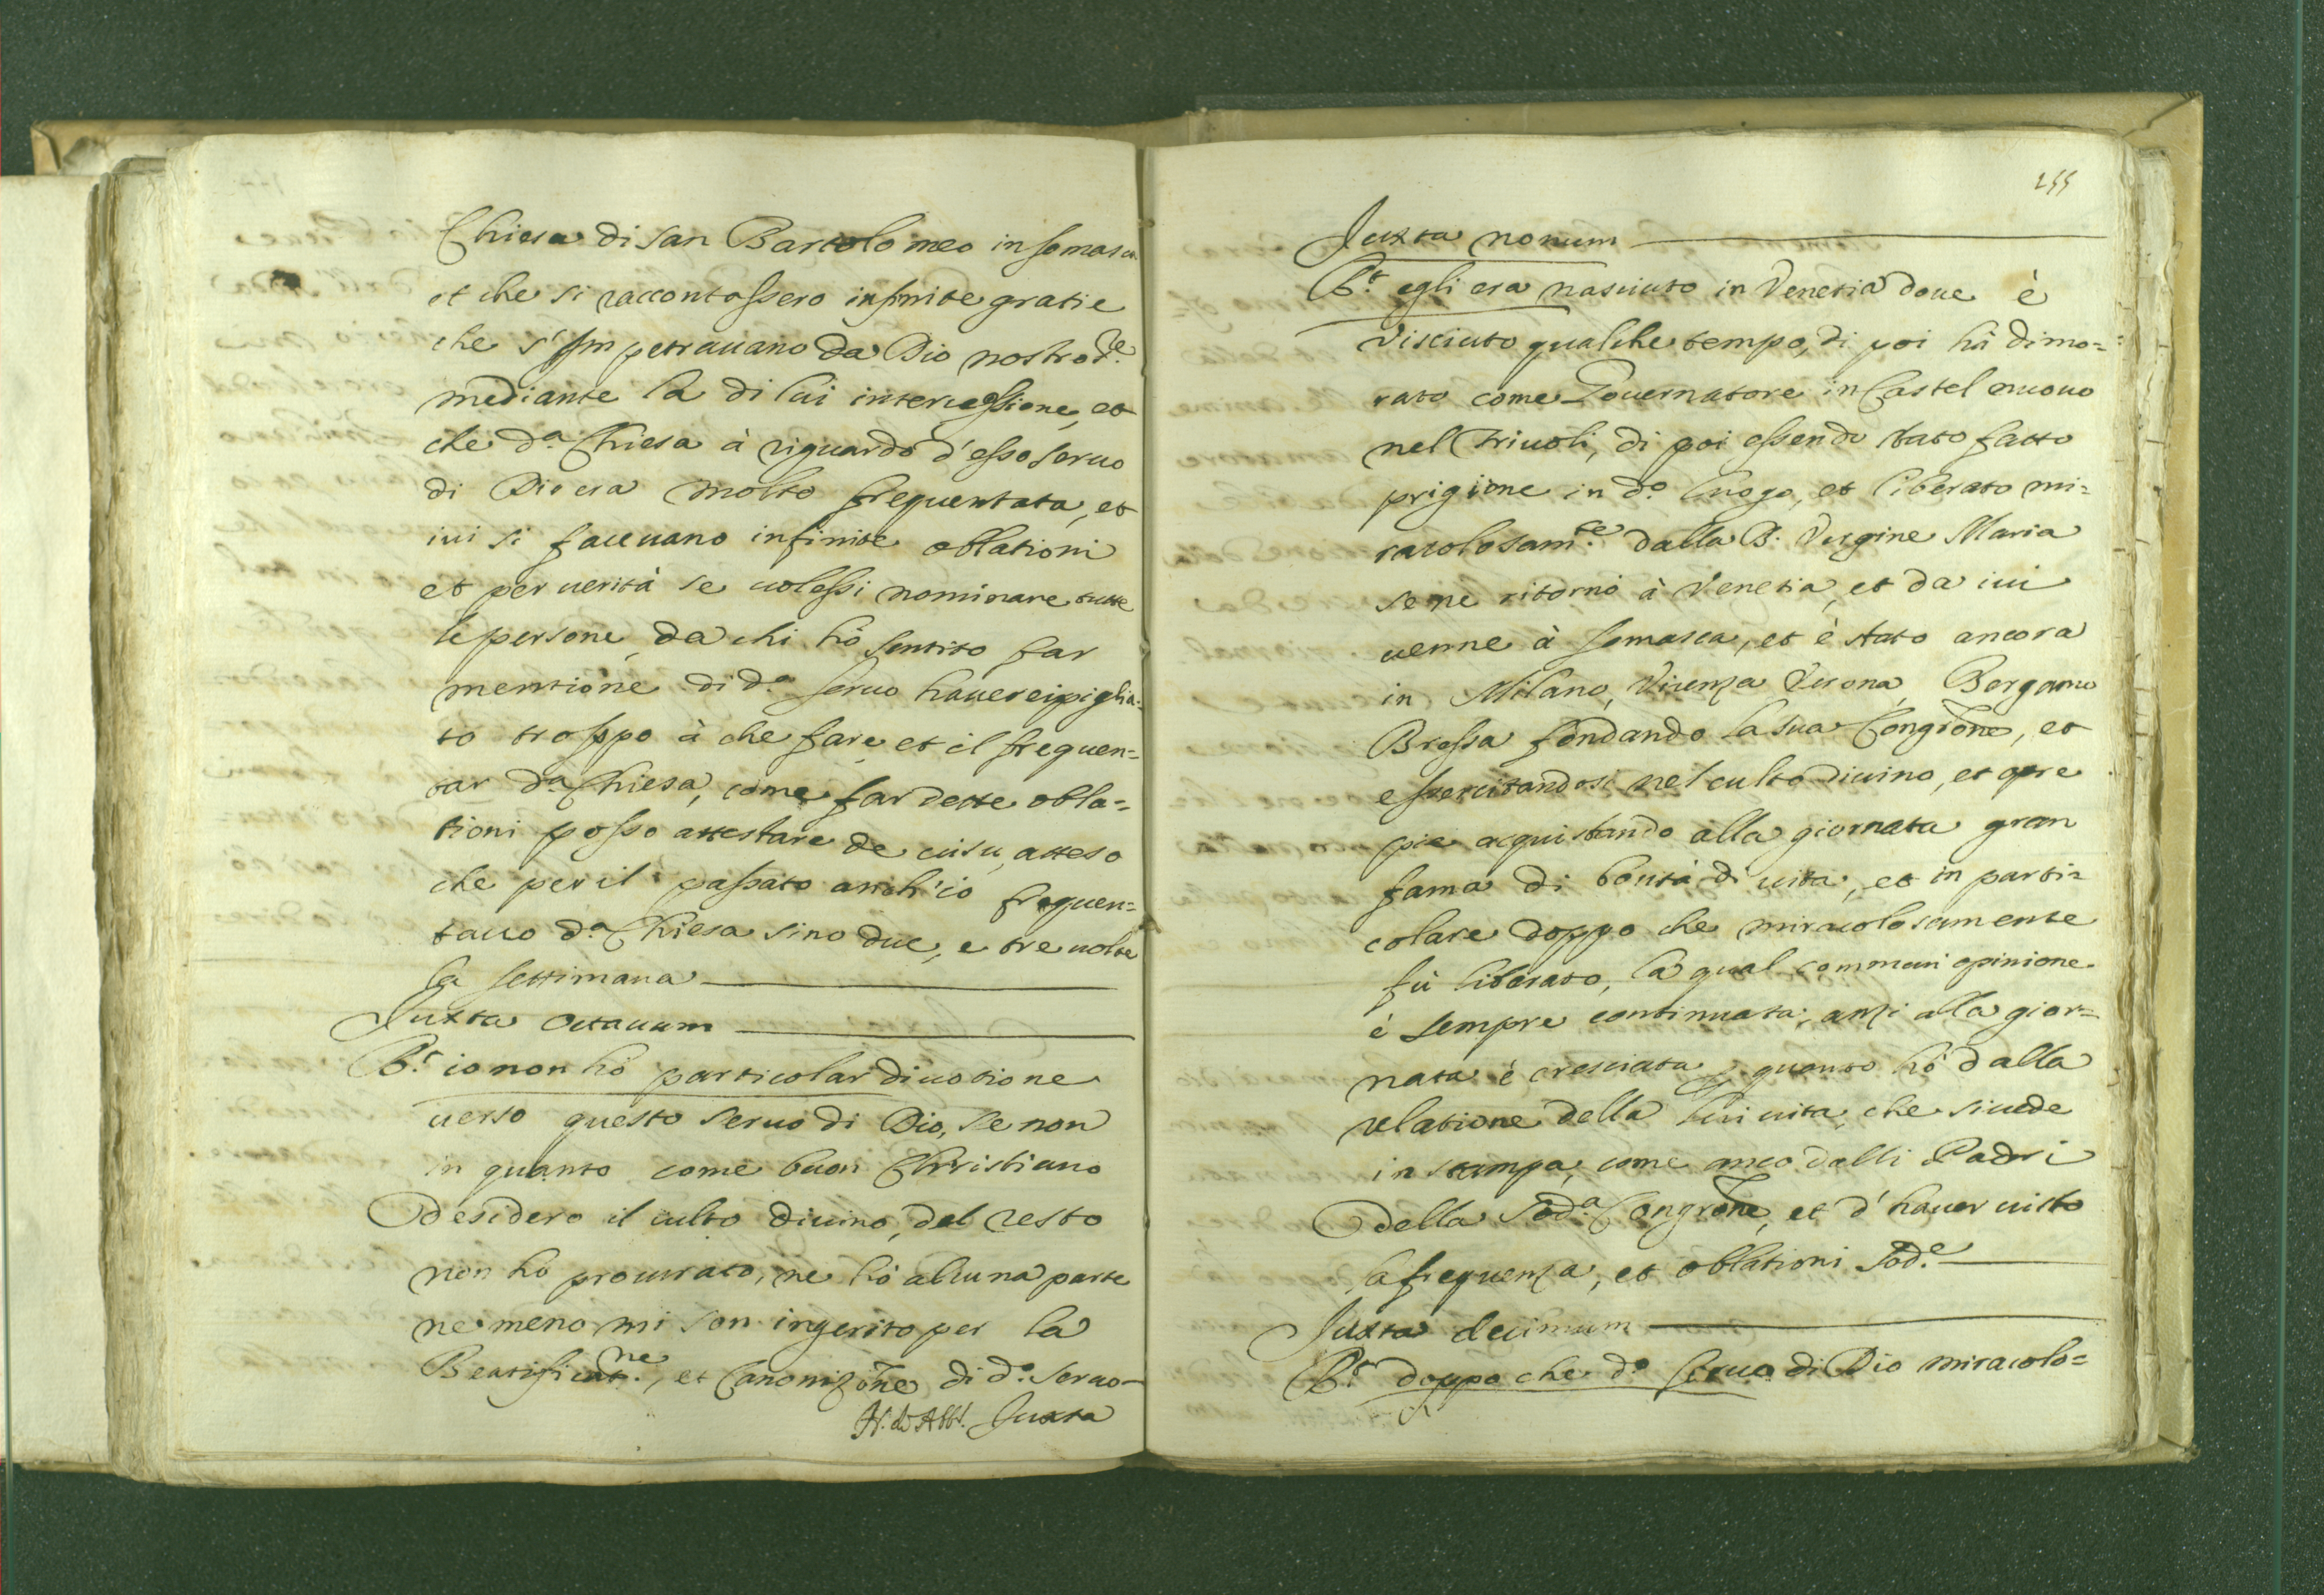 Chiesa di san Bartolomeo in somasca
et che si raccontassero infinite gratie
che s'impetrauano da Dio nostro S.re
mediante la di lui intercessione, et
che d.a Chiesa à riguardo d'esso seruo
di Dio era molto frequentata, et
iui si faceuano infinite oblationi
et per uerità se uolessi nominare tutte
le persone, da chi hò sentito far
mentione di d.o seruo hauerei piglia-
to troppo à che fare, et il frequen=
tar d.a Chiesa, come far dette obla=
tioni posso attestare de uisu, atteso
che per il passato anch'io frequen=
tauo d.a Chiesa sino due, e tre uolte
la settimana
Juxta octauum
R.t io non hò particolar diuotione
uerso questo seruo di Dio, se non
in quanto come buon Christiano
desidero il culto diuino, del resto
non hò procurato, ne hò alcuna parte
ne meno mi son ingerito per la
Beatificat.ne, et Canonizōne di d.o seruo
Juxta
255
Juxta nonum
R.t egli era nasciuto in Venetia doue è
visciuto qualche tempo, di poi hà dimo=
rato come Gouernatore in Castel nuouo
nel Friuoli, di poi essendo stato fatto
prigione in d.o luogo, et liberato mi=
racolosam.te dalla B. Vergine Maria
se ne ritornò à Venetia, et da iui
uenne à somasca, et è stato ancora
in Milano, Vicenza Verona, Bergamo
Bressa fondando la sua Congrōne, et
essercitandosi nel culto diuino, et opre
pie acquistando alla giornata gran
fama di bontà di uita, et in parti=
colare doppo che miracolosamente
fù liberato, la qual commun opinione
è sempre continuata, anzi alla gior=
nata è cresciuta p quanto hò dalla
relatione della lui uita, che si uede
in stampa, come anco dalli Padri
della sod.a Congrōne, et d'hauer uisto
la frequenza, et oblationi sod.e
Juxta decimum
R.t doppo che d.o seruo di Dio miracolo=